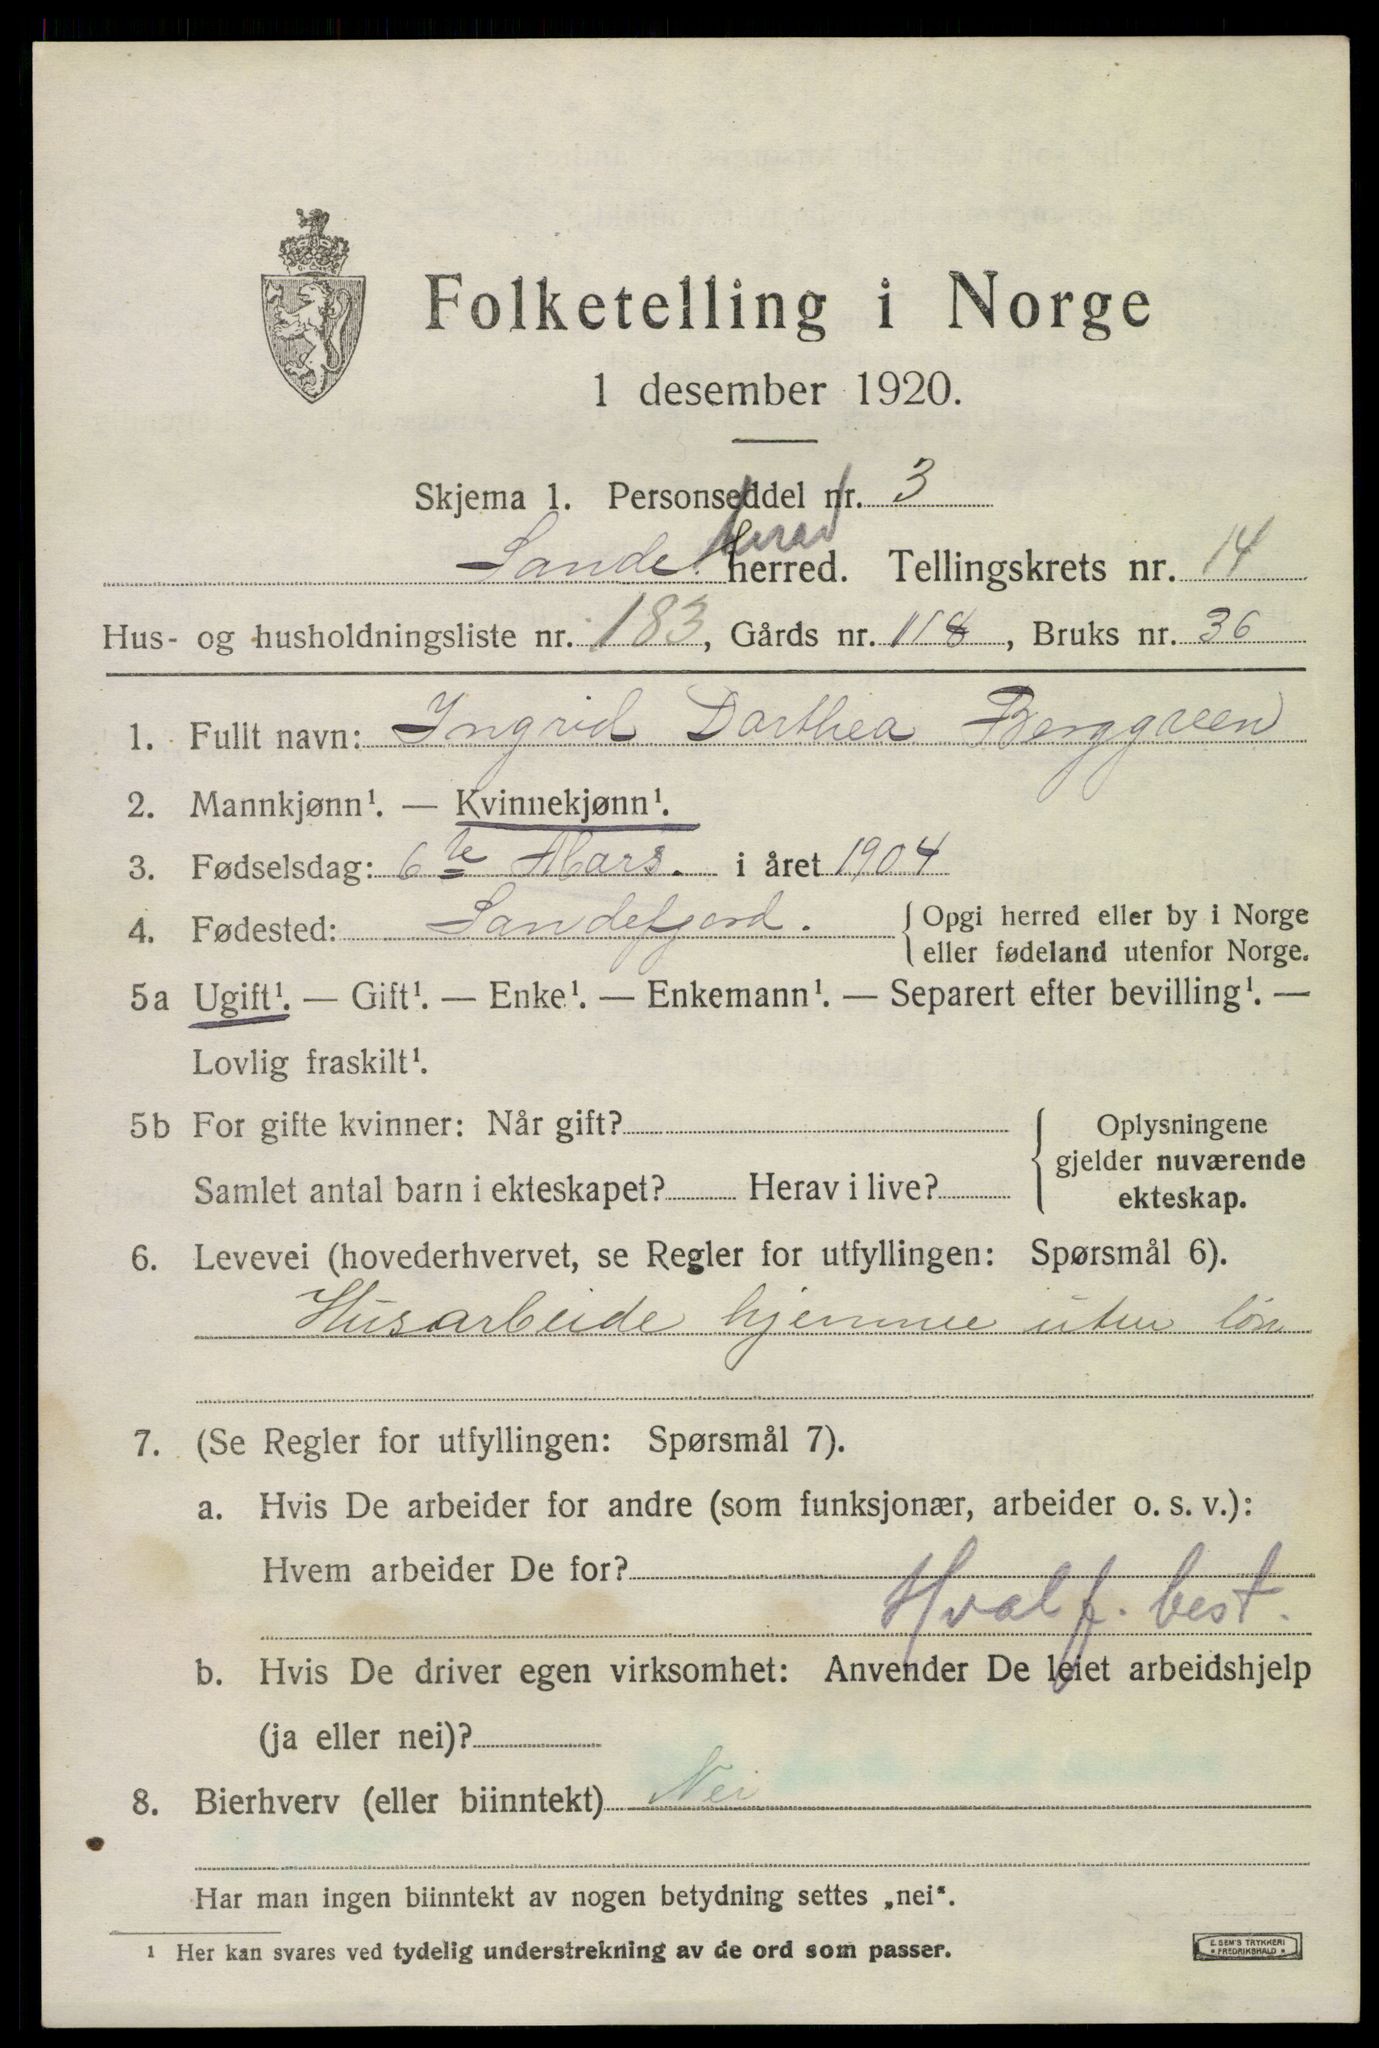 Folketelling i Norge
1 desember 1920.
Skjema 1. Personseddel nr. 3
Sandeherad herred. Tellingskrets nr. 14
Hus- og husholdningsliste nr. 183, Gårds nr. 118, Bruks nr. 36
1. Fullt navn: Ingrid Dorthea Berggreen
2. Mannkjønn¹. — Kvinnekjønn¹.
3. Fødselsdag: 6te Mars. i året 1904
4. Fødested: Sandefjord. { Opgi herred eller by i Norge
eller fødeland utenfor Norge.
5a Ugift¹. — Gift¹. — Enke¹. — Enkemann¹. — Separert efter bevilling¹. —
Lovlig fraskilt¹.
5b For gifte kvinner: Når gift? { Oplysningene
gjelder nuværende
Samlet antal barn i ekteskapet? Herav i live? ekteskap.
6. Levevei (hovederhvervet, se Regler for utfyllingen: Spørsmål 6).
Husarbeide hjemme uten løn
7. (Se Regler for utfyllingen: Spørsmål 7).
a. Hvis De arbeider for andre (som funksjonær, arbeider o. s. v.):
Hvem arbeider De for?
Hvalf. best.
b. Hvis De driver egen virksomhet: Anvender De leiet arbeidshjelp
(ja eller nei)?
8. Bierhverv (eller biinntekt) Nei
Har man ingen biinntekt av nogen betydning settes „nei“.
¹ Her kan svares ved tydelig understrekning av de ord som passer.
E. SEM'S TRYKKERI
FREDRIKSHALD